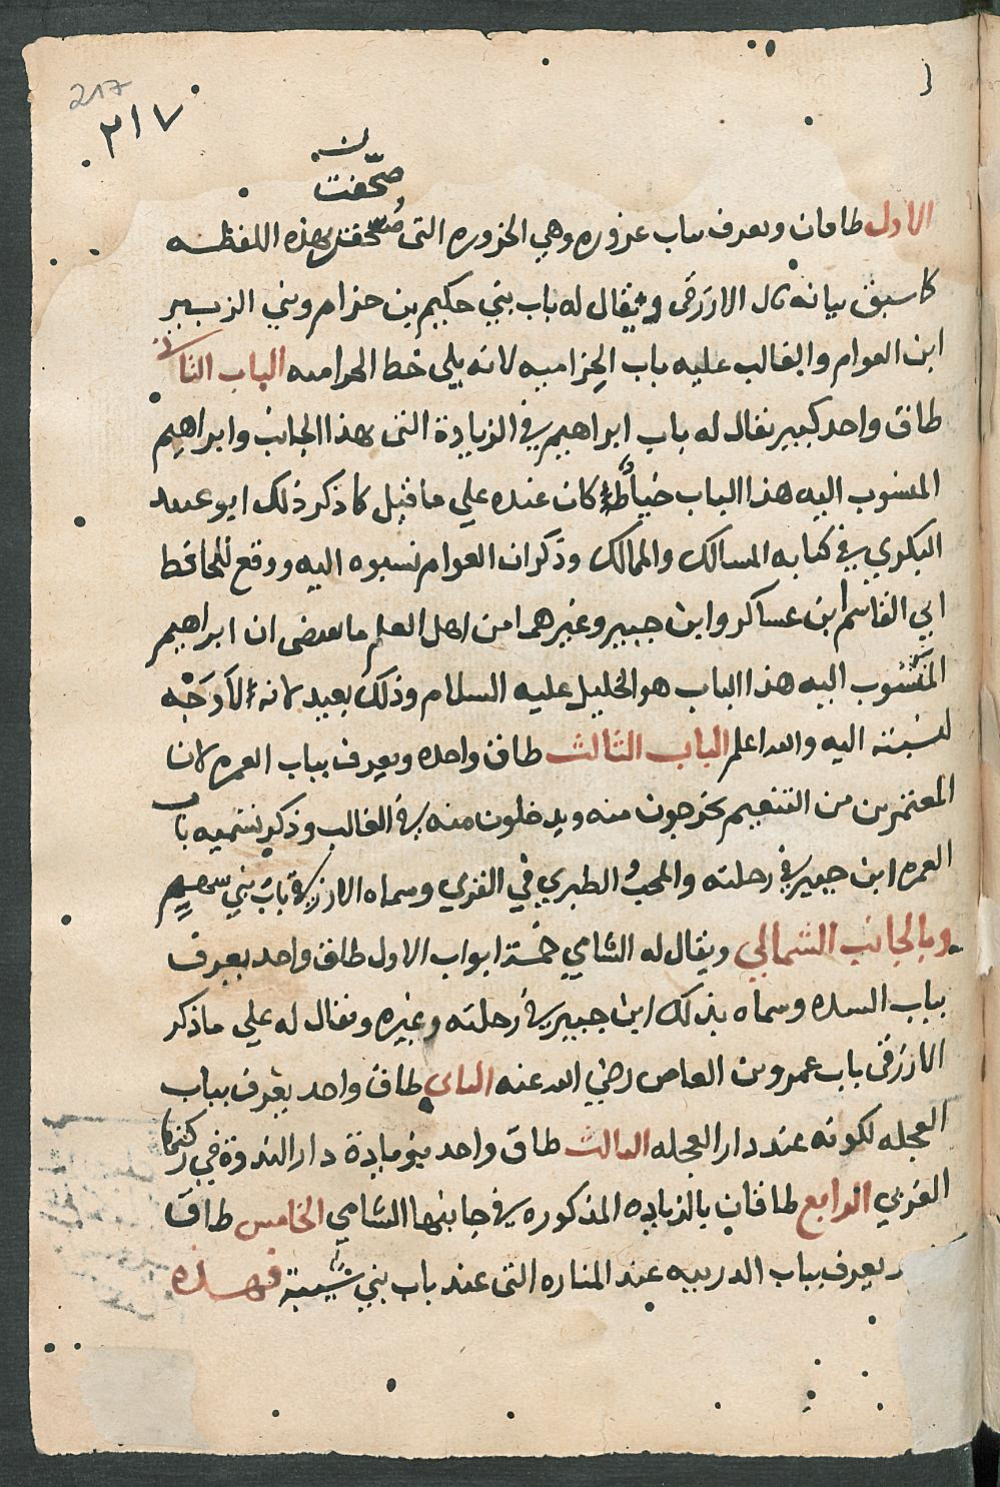 217
٢١٧
صحفت
الاول طاقان ويعرف بباب عزوره وهي الحزوره التى صحفت بهذه اللفظه
كما سبق بيانه قال الازرقى ويقال له باب بني حكيم بن حزام وبني الزبير
ابن العوام والغالب عليه باب الحزاميه لانه يلي خط الحزاميه الباب الثانى
طاق واحد كبير يقال له باب ابراهيم في الزيادة التى بهذا الجانب وابراهيم
المنسوب اليه هذا الباب خياط كان عنده علي ما قيل كما ذكر ذلك ابو عبيد
البكري في كتابه المسالك والممالك وذكر ان العوام نسبوه اليه ووقع للحافظ
ابي القاسم ابن عساكر وابن جبير وغيرهما من اهل العلم ما يقتضى ان ابراهيم
المنسوب اليه هذا الباب هو الخليل عليه السلام وذلك بعيد لانه لا وجه
لنسبته اليه والله اعلم الباب الثالث طاق واحده ويعرف بباب العمره لان
المعتمرين من التنعيم يخرجون منه ويدخلون منه في الغالب وذكر تسميه باب
العمره ابن جبير في رحلته والمحب الطبري في القري وسماه الازرقى باب بني سهم
وبالجانب الشمالي ويقال له الشامي خمسة ابواب الاول طاق واحد يعرف
بباب السده وسماه بذلك ابن جبير في رحلته وغيره ويقال له علي ما ذكر
الازرقى باب عمرو بن العاص رضي الله عنه الثاني طاق واحد يعرف بباب
العجله لكونه عند دار العجله الثالث طاق واحد بزيادة دار الندوة في ركنها
الغربي الرابع طاقان بالزياده المذكوره في جانبها الشامي الخامس طاق
يعرف بباب الدريبه عند المناره التى عند باب بني شيبة فهذه